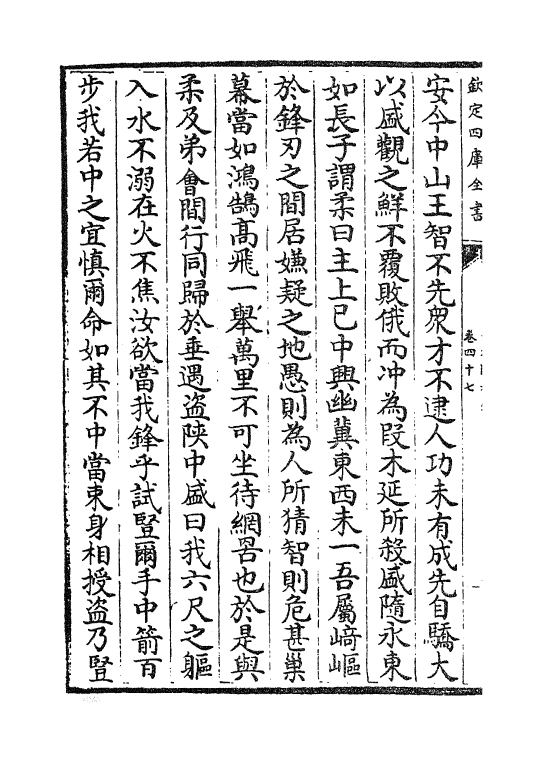 欽定四庫全書
卷四十七
安今中山王智不先衆才不逮人功未有成先自驕大
以盛觀之鮮不覆敗俄而冲為段木延所殺盛隨永東
如長子謂柔曰主上已中興幽冀東西未一吾屬﨑嶇
於鋒刃之間居嫌疑之地愚則為人所猜智則危甚巢
幕當如鴻鵠高飛一舉萬里不可坐待網罟也於是與
柔及弟會間行同歸於垂遇盜陜中盛曰我六尺之軀
入水不溺在火不焦汝欲當我鋒乎試豎爾手中箭百
步我若中之宜慎爾命如其不中當束身相授盜乃豎